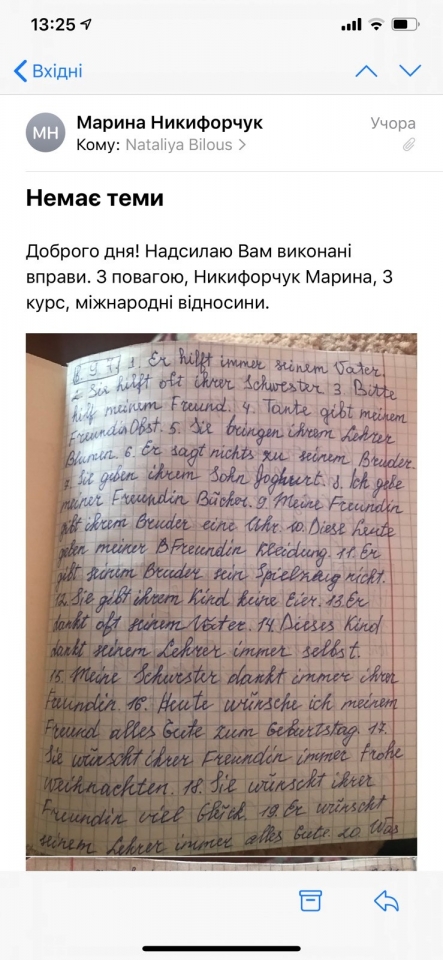 13:25
Вхідні
МН
Марина Никифорчук
Учора
Кому: Nataliya Bilous
Немає теми
Доброго дня! Надсилаю Вам виконані
вправи. З повагою, Никифорчук Марина, 3
курс, міжнародні відносини.
1. Er hilft immer seinem Vater.
2. Sie hilft oft ihrer Schwester 3. Bitte
hilf meinem Freund. 4. Tante gibt meinem
Freunda Obst. 5. Sie bringen ihrem Lehrer
Blumen. 6. Er sagt nichts zu seinem Bruder.
7. Sie geben ihrem Sohn Joghurt. 8. Ich gebe
meiner Freundin Bücher. 9. Meine Freundin
gibt ihrem Bruder eine Uhr. 10. Diese Leute
geben meiner Freundin Kleidung. 11. Er
gibt seinem Bruder sein Spielzeug nicht.
12. Sie gibt ihrem Kind keine Eier. 13. Er
dankt oft seinem Vater. 14. Dieses Kind
dankt seinem Lehrer immer selbst.
15. Meine Schwester dankt immer ihrer
Freundin. 16. Heute wünsche ich meinem
Freund alles Gute zum Geburtstag. 17.
Sie wünscht ihrer Freundin immer frohe
Weihnachten. 18. Sie wünscht ihrer
Freundin viel Glück. 19. Er wünscht
seinem Lehrer immer alles Gute. 20. Was